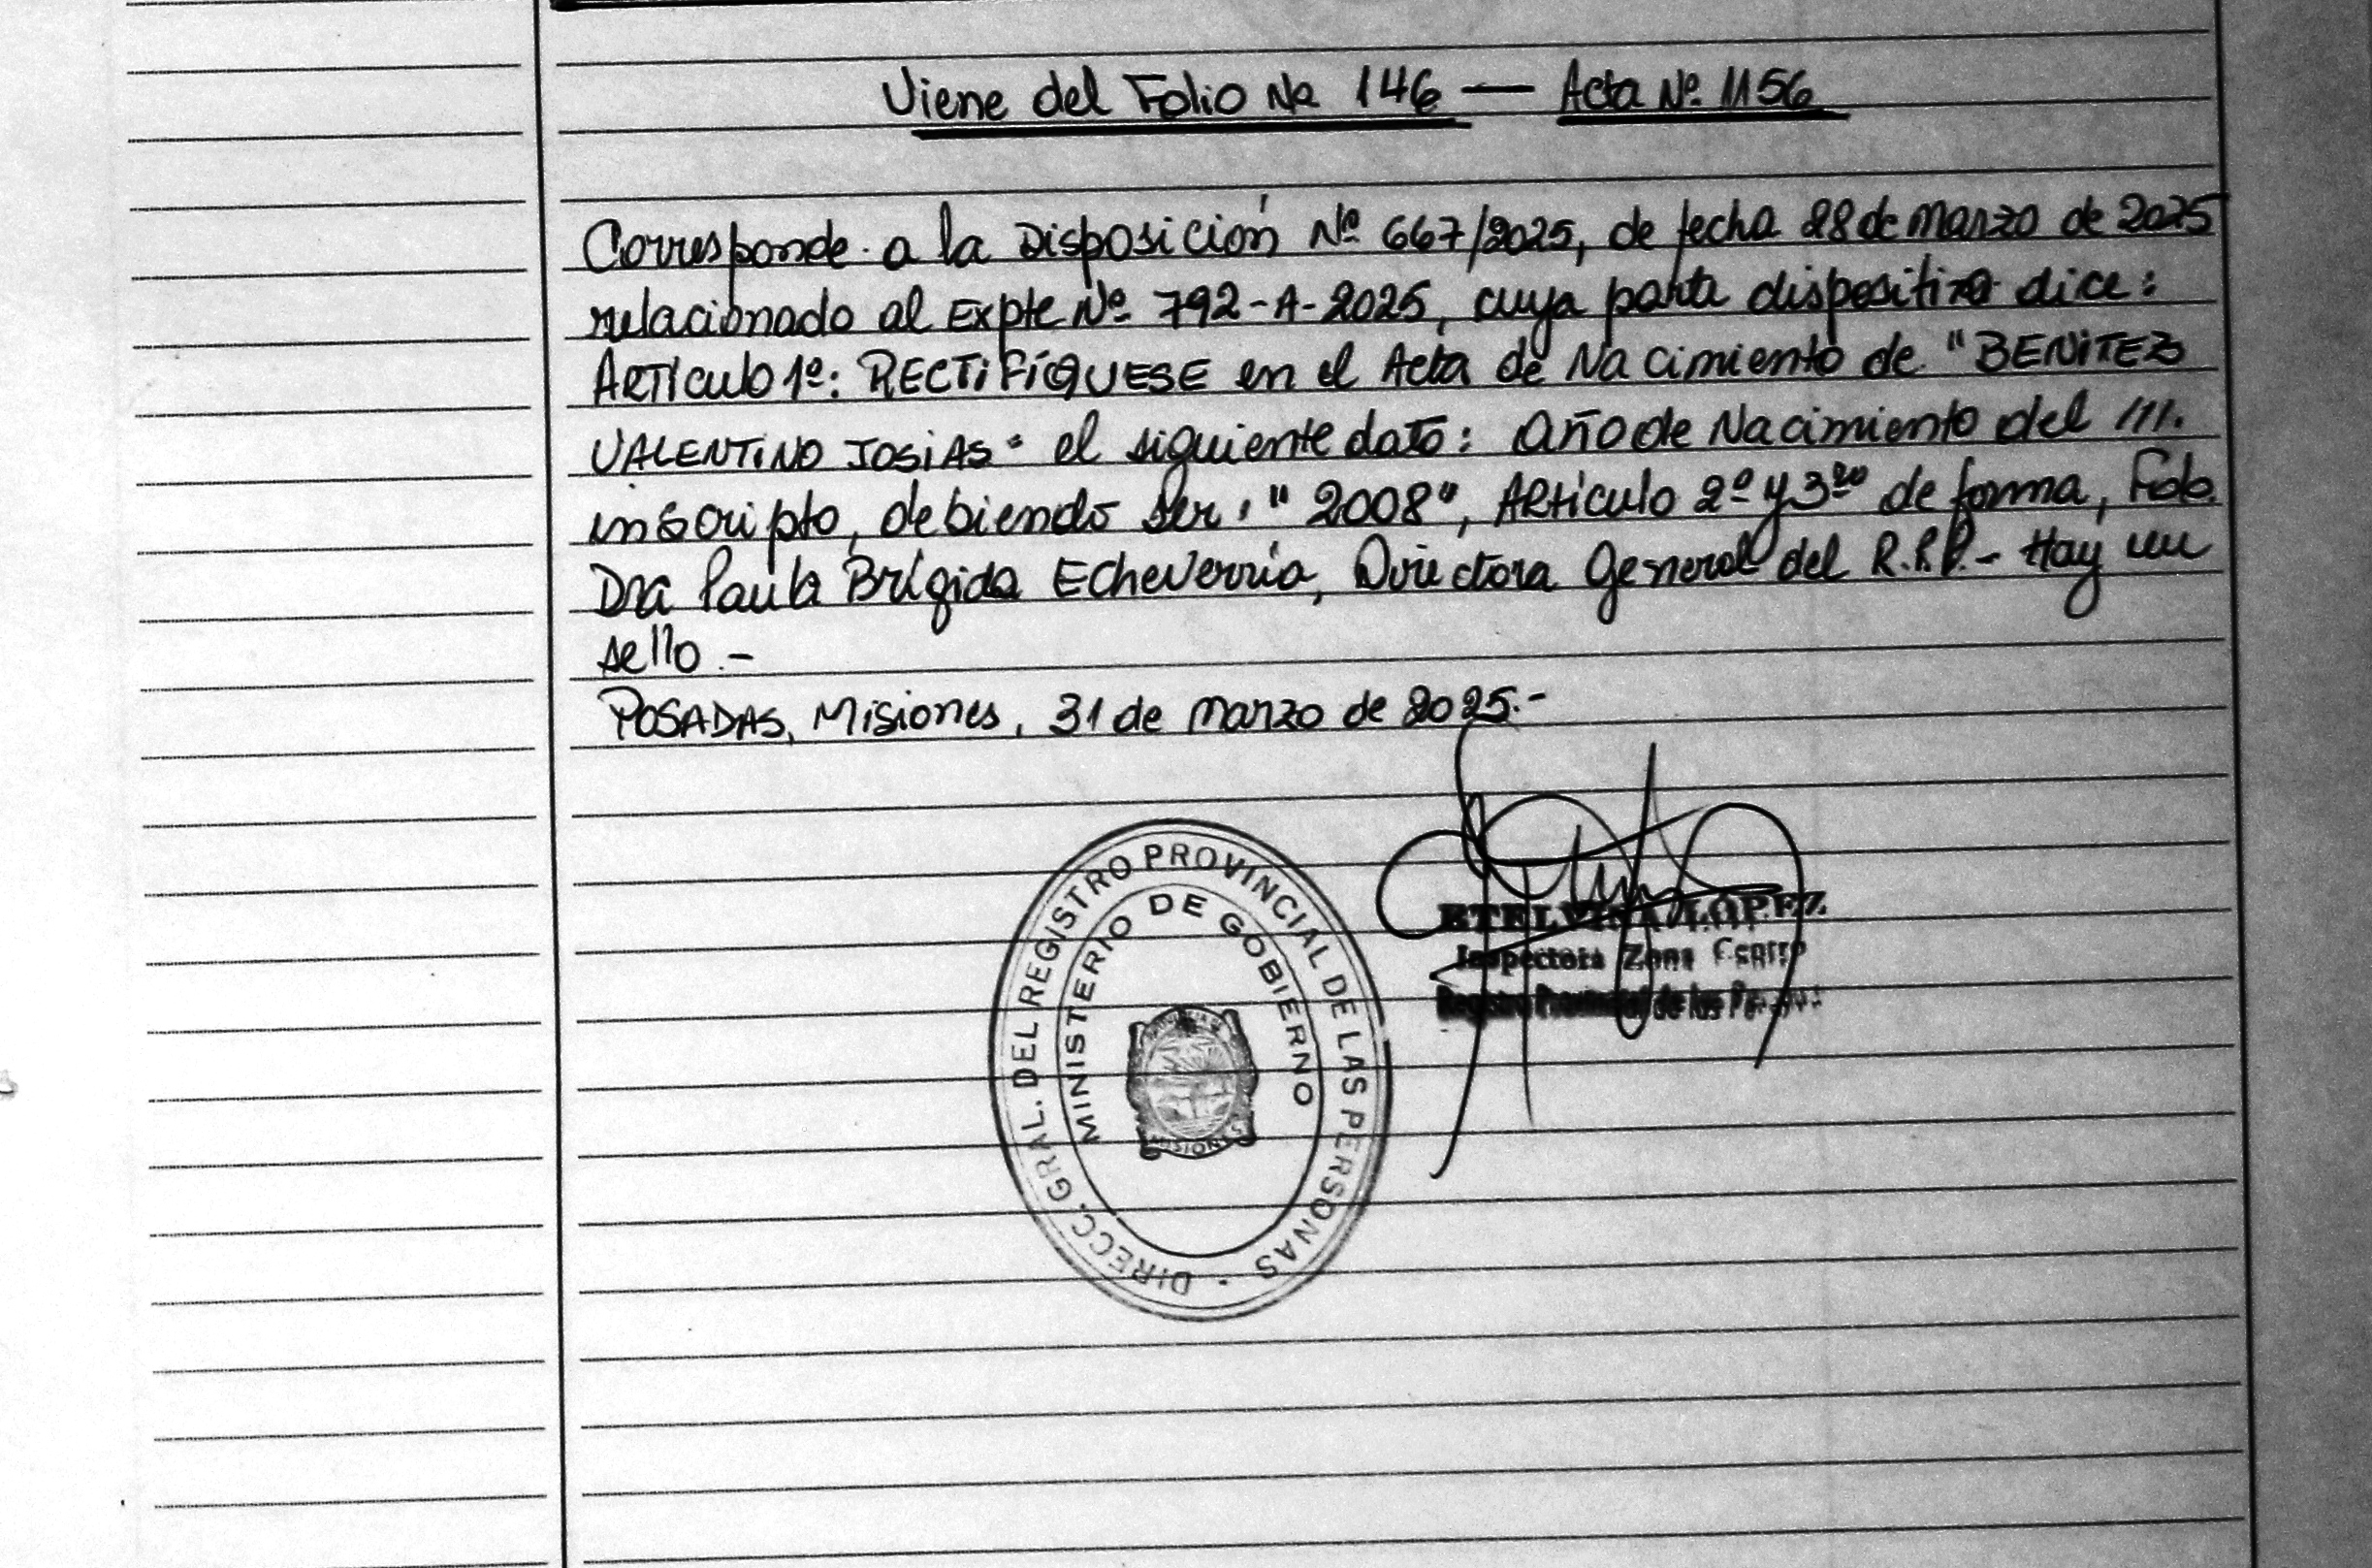 Viene del Folio No 146 — Acta Nº 1156
Corresponde a la Disposición Nº 667/2025, de fecha 28 de marzo de 2025
relacionado al Expte Nº 792-A-2025, cuya parte dispositiva dice:
ARTÍculo 1º: RECTIFÍQUESE en el Acta de Nacimiento de "BENITEZ
VALENTINO JOSIAS" el siguiente dato: año de Nacimiento del ///.
inscripto, debiendo ser: "2008", Artículo 2º y 3ro de forma, Fdo.
Dra Paula Brígida Echeverría, Directora General del R.P.P.- Hay un
sello.-
POSADAS, Misiones, 31 de marzo de 2025.-
DIRECC. GRAL. DEL REGISTRO PROVINCIAL DE LAS PERSONAS
MINISTERIO DE GOBIERNO
MISIONES
ETELVINA LOPEZ
Inspectora Zona Centro
Registro Provincial de las Personas